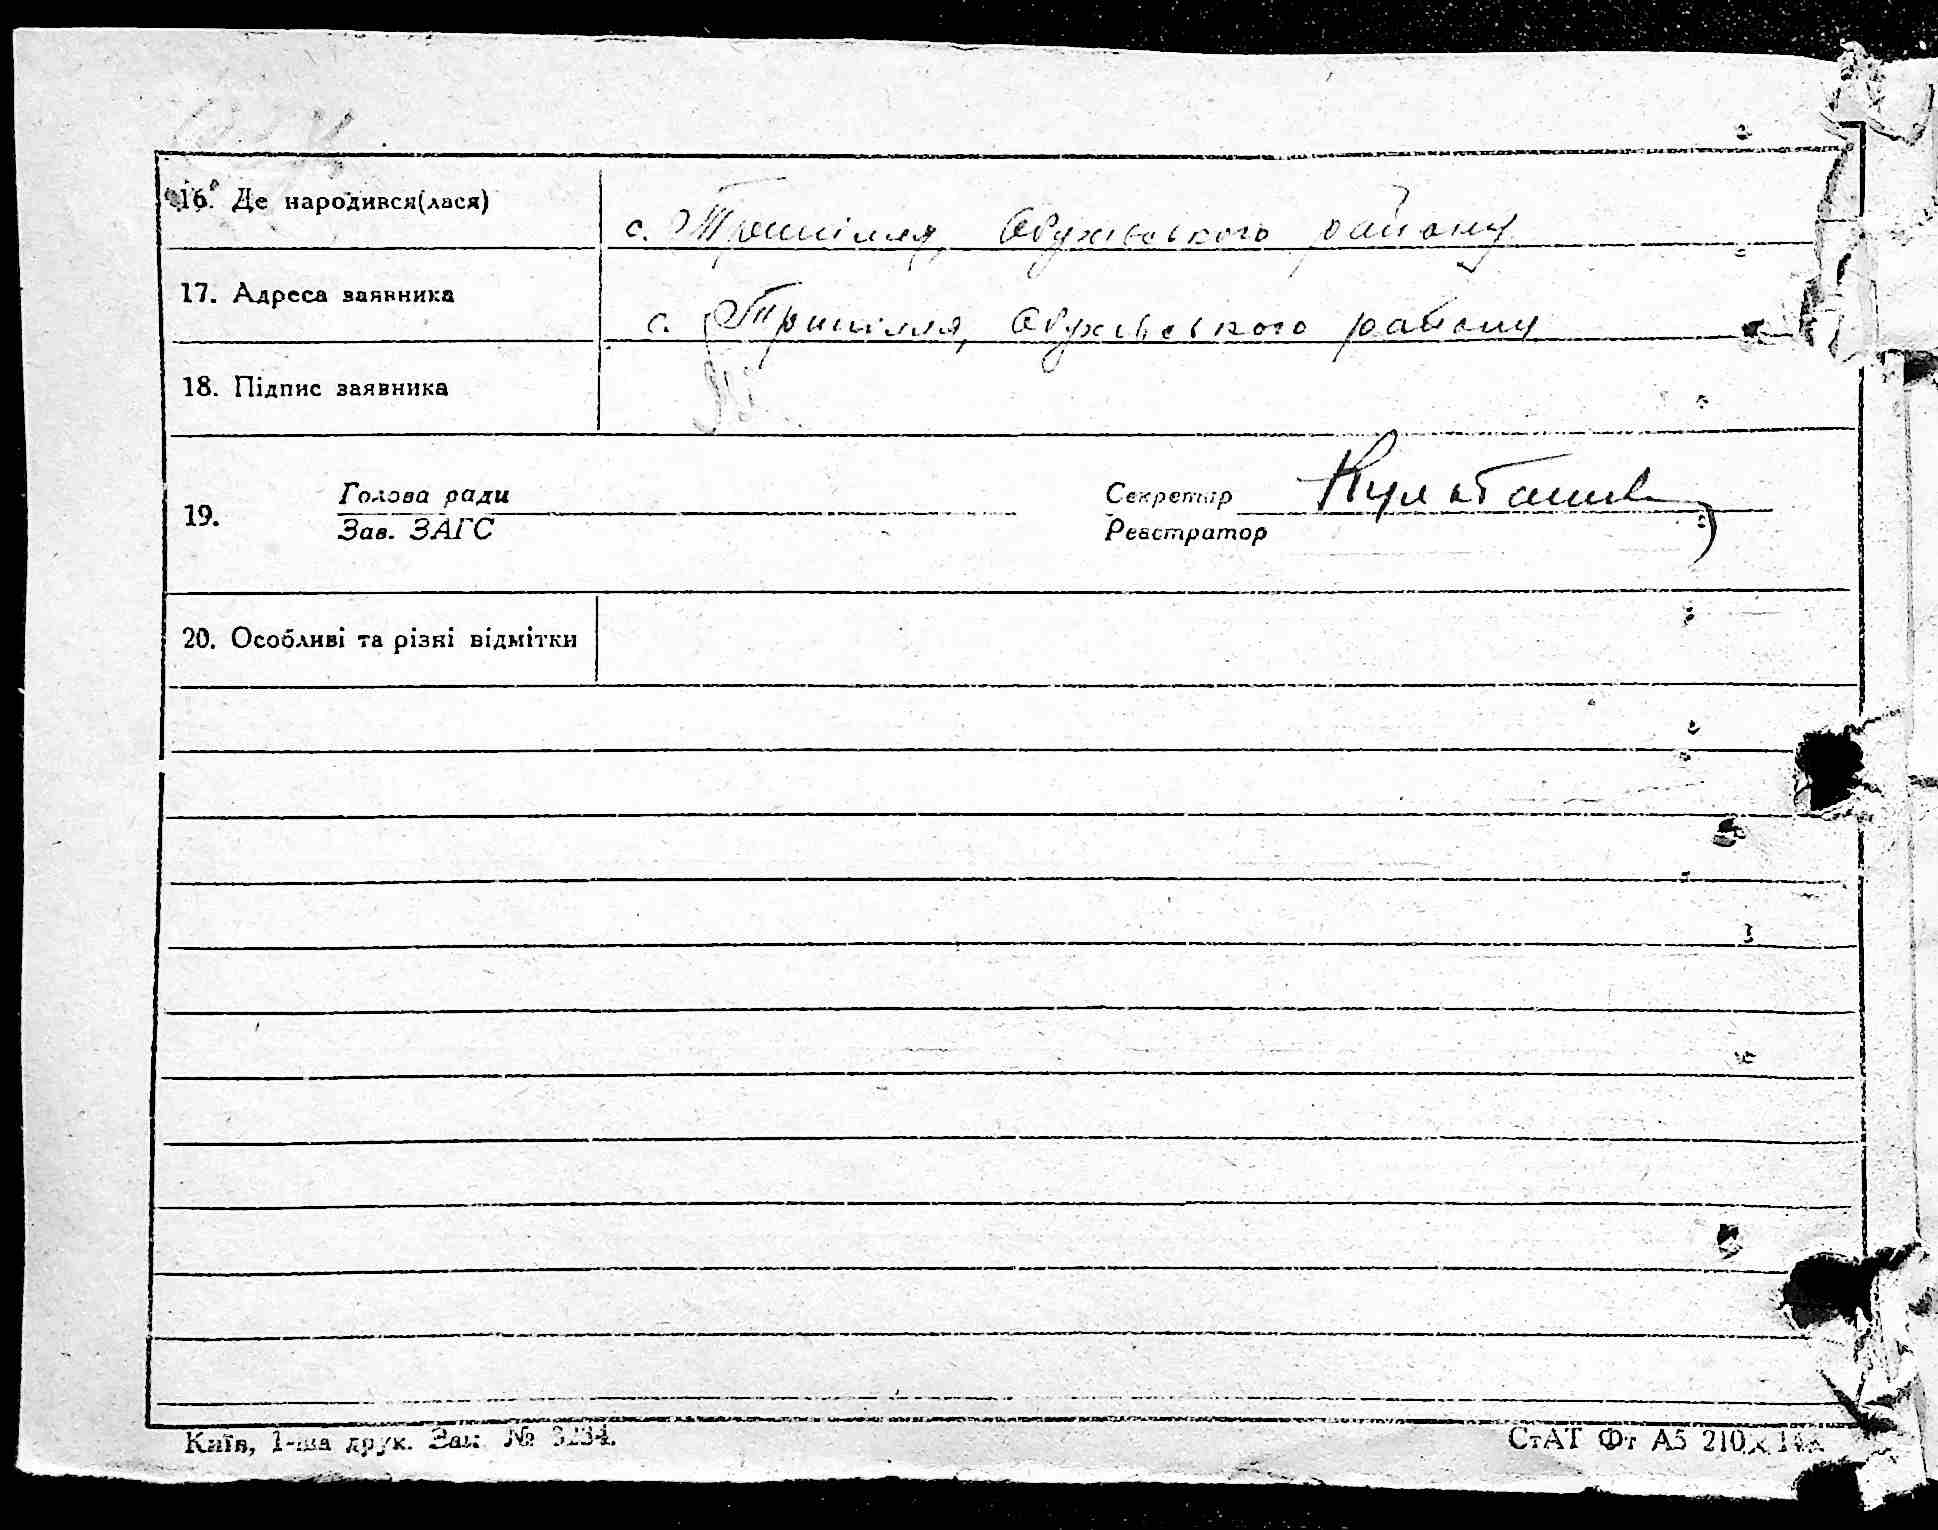 16. Де народився(лася) с. Трипілля, Обухівського району
17. Адреса заявника с. Трипілля, Обухівського району
18. Підпис заявника
Голова ради Секретар
19.
Зав. ЗАГС Реєстратор
20. Особливі та різні відмітки
Київ, 1-ша друк. Зам. № 3234. СтАТ Фт А5 210 х